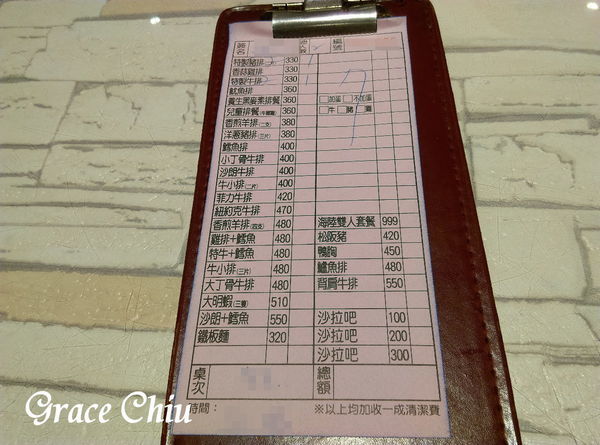 編號
特製豬排 330
香蒜雞排 330
特製牛排 330
魷魚排 360
養生黑崙素排餐 360 □加蛋 □不加蛋
兒童排餐 360 □牛 □豬 □雞
香煎羊排(二支) 380
洋蔥豬排(三片) 380
鱈魚排 400
小丁骨牛排 400
沙朗牛排 400
牛小排(二片) 400
菲力牛排 420
紐約克牛排 470
香煎羊排(四支) 480 海陸雙人套餐 999
雞排+鱈魚 480 松阪豬 420
特牛+鱈魚 480 鴨胸 450
牛小排(三片) 480 鱸魚排 480
大丁骨牛排 480 背肩牛排 550
大明蝦(三隻) 510
沙朗+鱈魚 550 沙拉吧 100
鐵板麵 320 沙拉吧 200
沙拉吧 300
桌次 總額
時間： ※以上均加收一成清潔費
Grace Chiu